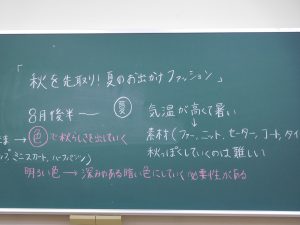 「秋を先取り!夏のお出かけファッション」
8月後半 ―
夏 気温が高くて暑い
↓
素材(ファー、ニット、セーター、コート、タイ
→ 色で秋らしさを出していく
秋っぽくしていくのは難しい
ミニスカート、ハーフパンツ)
明るい色 → 深みのある暗い色にしていく必要性がある